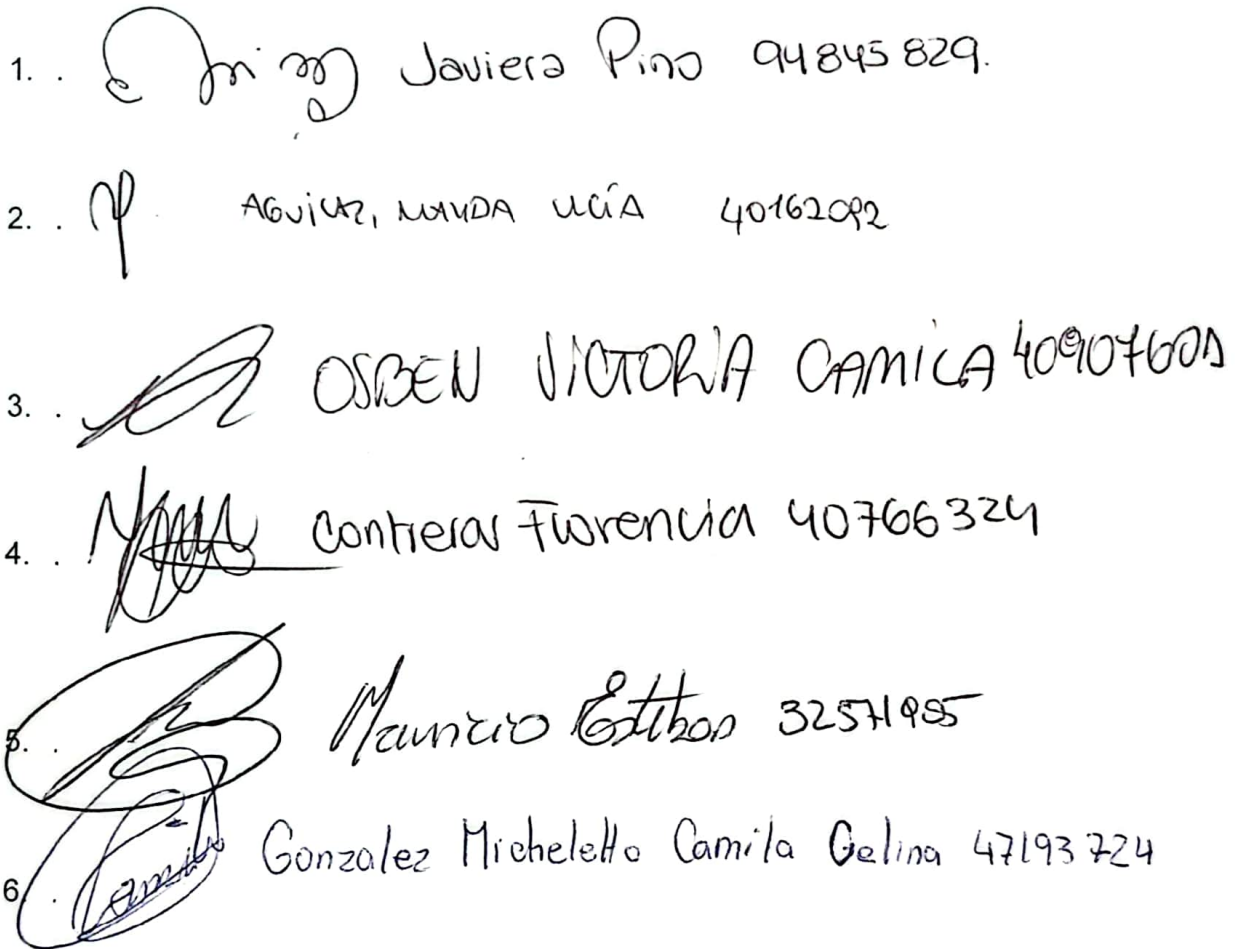 1. . Javiera Pino 94845829.
2. . AGUILAR, MAYDA LUCÍA 40162092
3. . OSBEN VICTORIA CAMILA 40907601
4. . Contreras Florencia 40766324
5. . Mauricio Esteban 32571955
6. . Gonzalez Micheletto Camila Celina 47193724